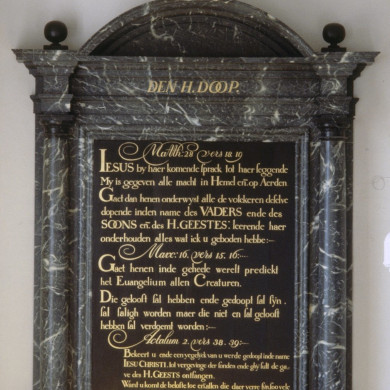 DEN H. DOOP.
Matth: 28 vers 18. 19
IESUS by haer komende sprack tot haer seggende
My is gegeven alle macht in Hemel en̄. op Aerden
Gaet dan henen onderwyst alle de volckeren deselve
dopende inden name des VADERS ende des
SOONS en̄. des H. GEESTES: leerende haer
onderhouden alles wal ick u geboden hebbe:~
Marc: 16. vers 15. 16:~
Gaet henen inde gehele werelt predickt
het Euangelium allen Creaturen.
Die gelooft sal hebben ende gedoopt sal syn.
sal saligh worden maer die niet en sal gelooft
hebben sal verdoemt worden:~
Actalum 2. vers 38. 39:~
Bekeert u ende een yegelyck van u werde gedoopt inde name
IESU CHRISTI. tot vergevinge der sonden ende ghy sult de ga-
ve des H. GEESTS ontfangen.
Want u komt de belofte toe